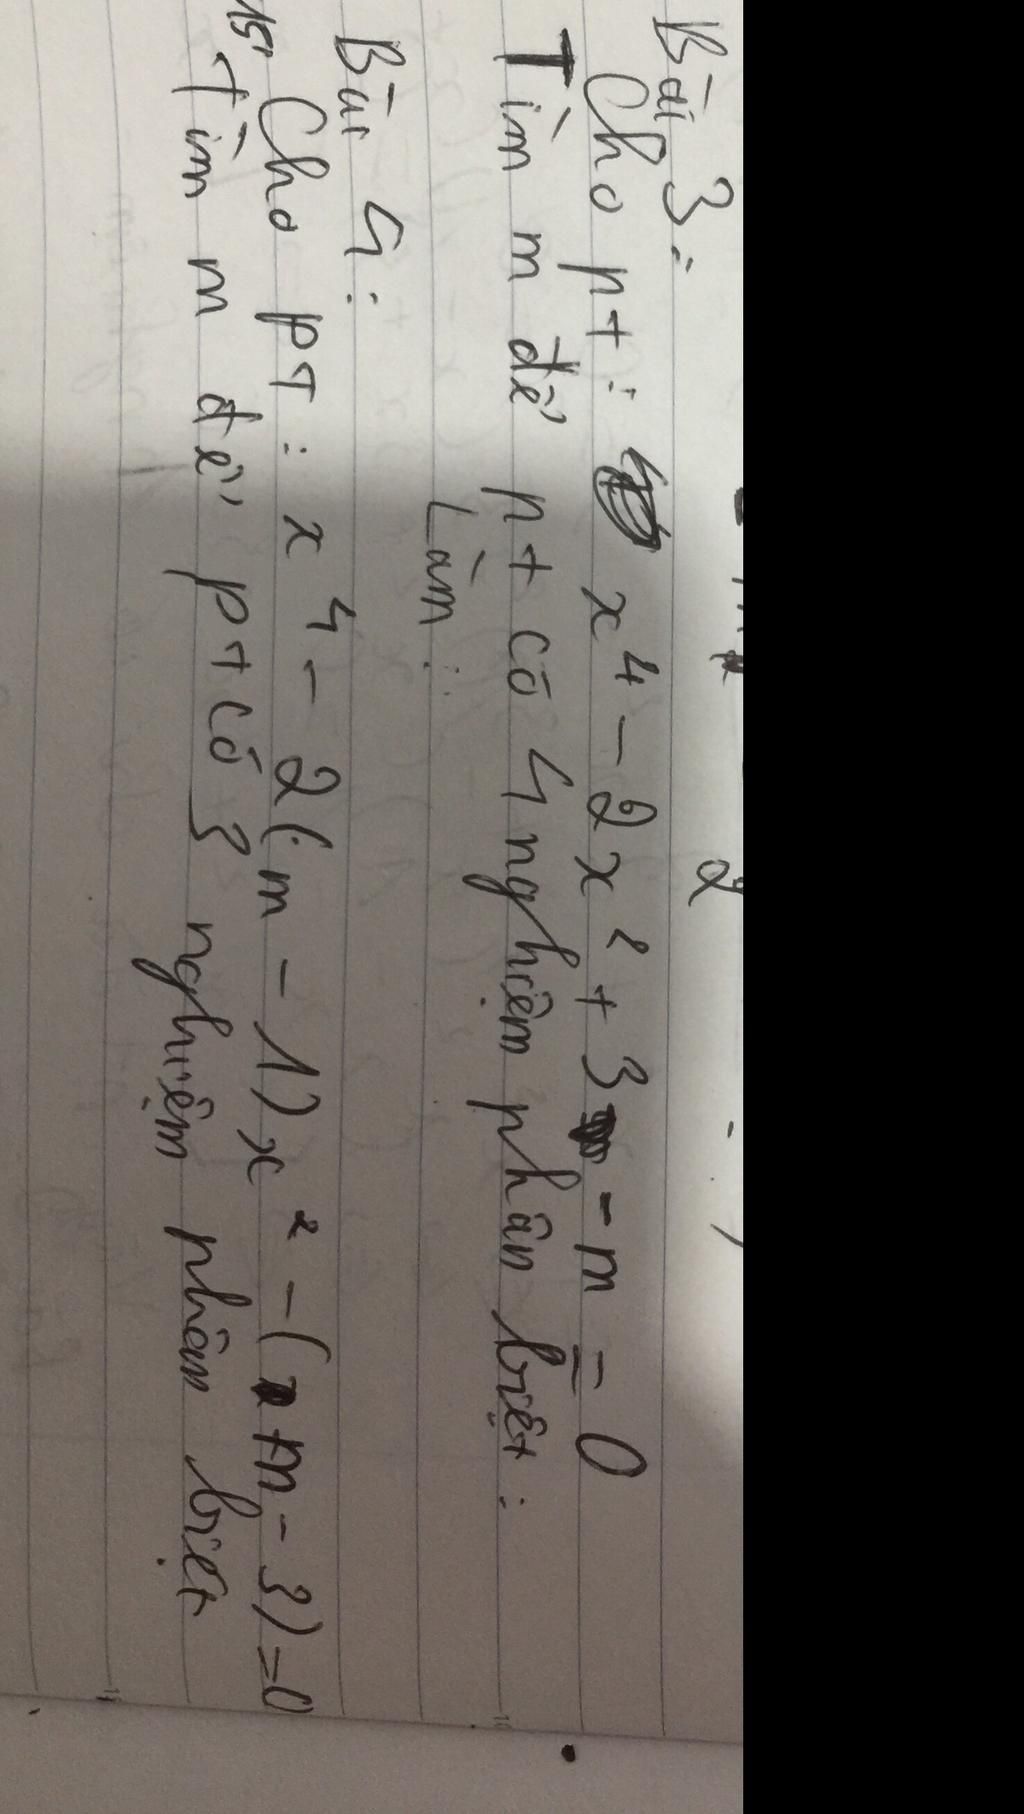 Bài 3:
Cho pt: x⁴ - 2x² + 3 - m = 0
Tìm m để pt có 4 nghiệm phân biệt:
Làm:
Bài 4:
Cho pt: x⁴ - 2(m - 1)x² - (m - 3) = 0
Tìm m để pt có 3 nghiệm phân biệt